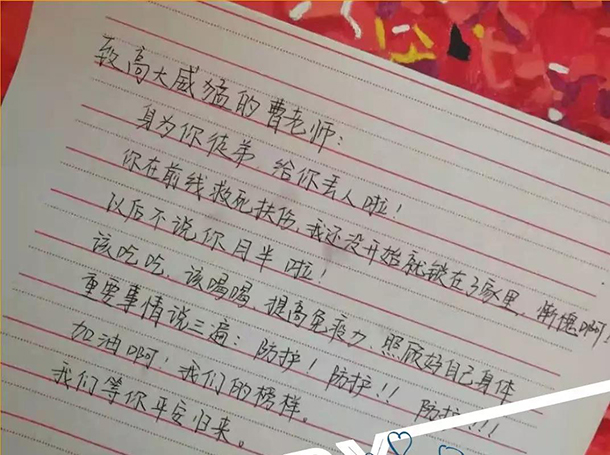 致高大威猛的曹老师:
身为你徒弟 给你丢人啦!
你在前线救死扶伤,我还没开始就锁在了家里,惭愧啊!
以后不说你月半啦!
该吃吃,该喝喝,提高免疫力,照顾好自己身体
重要事情说三遍:防护!防护!!防护!!!
加油啊!我们的榜样。
我们等你平安归来。